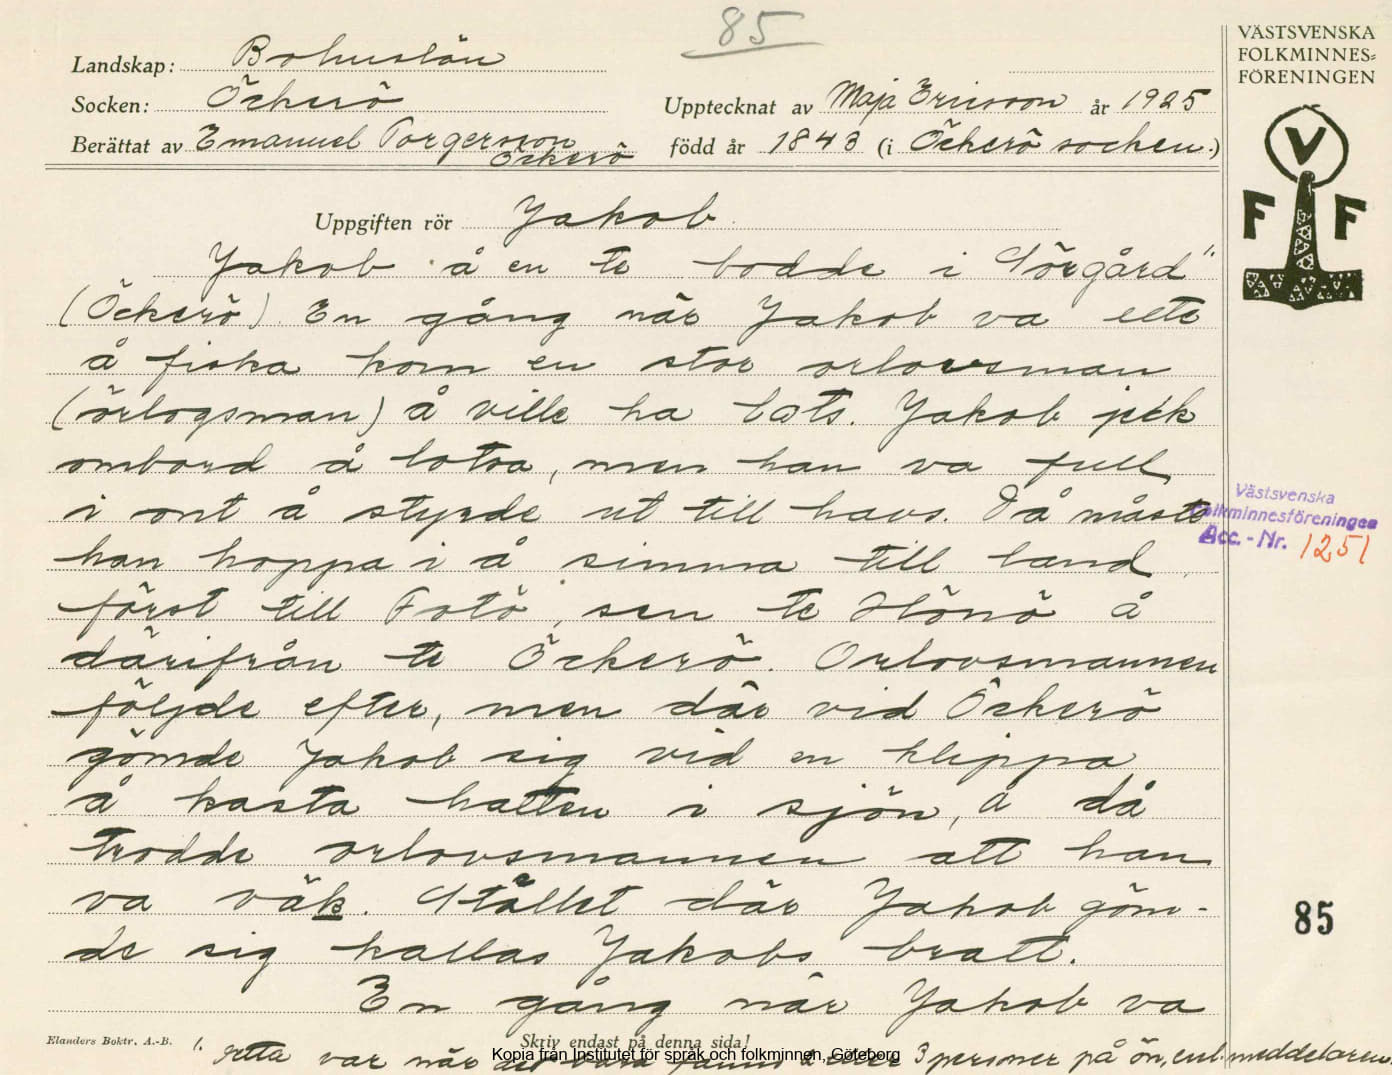 85
VÄSTSVENSKA
FOLKMINNES=
FÖRENINGEN
Landskap: Bohuslän
Socken: Öckerö
Upptecknat av Maja Ericsson år 1925
Berättat av Emanuel Torgersson
Öckerö
född år 1843 (i Öckerö socken.)
V
F F
Uppgiften rör Jakob
Jakob å en te bodde i Sörgård"
(Öckerö). En gång när Jakob va ute
å fiska kom en stor orlovsman
(örlogsman) å ville ha lots. Jakob jick
ombord å lotsa, men han va full
i ont å styrde ut till havs. Då måste
han hoppa i å simma till land,
först till Fotö, sen te Hönö å
därifrån te Öckerö. Orlovsmannen
följde efter, men där vid Öckerö
gömde Jakob sig vid en klippa
å kasta hatten i sjön, å då
trodde orlovsmannen att han
va väk. Stället där Jakob göm-
de sig kallas Jakobs bratt.
En gång när Jakob va
Västsvenska
Folkminnesföreningen
Acc. - Nr. 1251
85
Elanders Boktr. A.-B.
Skriv endast på denna sida!
1. Detta var när det bara fanns 2 eller 3 personer på ön, enl. meddelaren.
Kopia från Institutet för språk och folkminnen, Göteborg